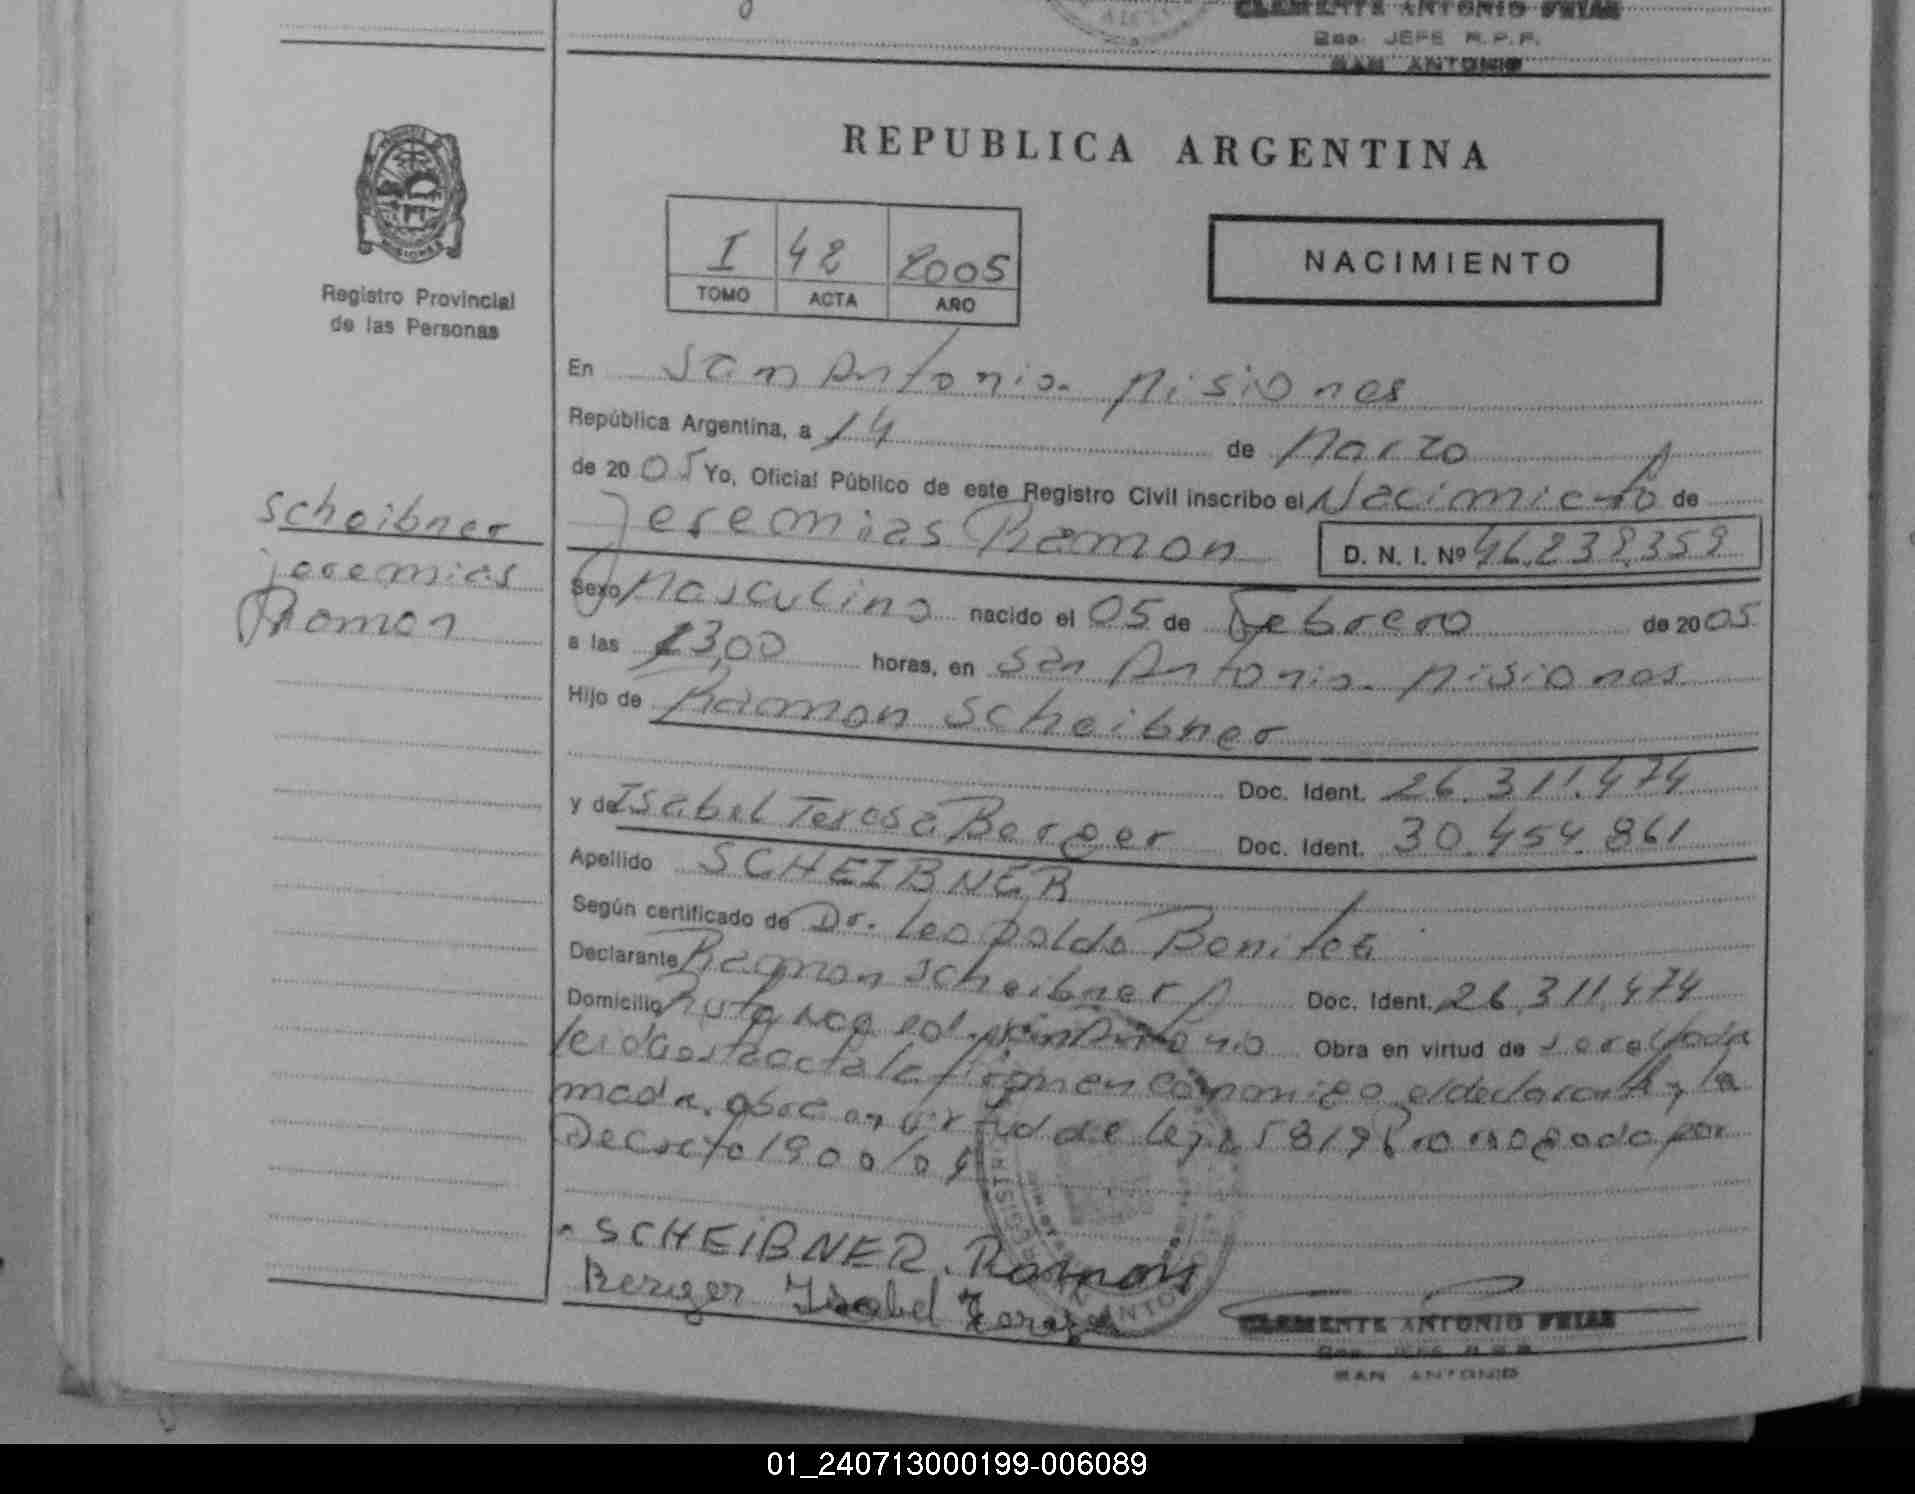 CLEMENTE ANTONIO FRIAS
JEFE R.P.P.
SAN ANTONIO
REPUBLICA ARGENTINA
I 42 2005
TOMO ACTA AÑO
NACIMIENTO
Registro Provincial
de las Personas
En San Antonio. Misiones
República Argentina, a 14 de Marzo
de 2005 Yo, Oficial Público de este Registro Civil inscribo el Nacimiento de
Jeremias Ramon D. N. I. Nº 46.239.359
Scheibner
jeremias
Ramon
Sexo Masculino nacido el 05 de Febrero de 2005
a las 13,00 horas, en San Antonio. Misiones
Hijo de Ramon Scheibner
Doc. Ident. 26.311.474
y de Isabel Teresa Berger Doc. Ident. 30.454.861
Apellido SCHEIBNER
Según certificado de Dr. Leopoldo Benitez
Declarante Ramon Scheibner Doc. Ident. 26.311.474
Domicilio Ruta San Antonio Obra en virtud de
leida esta acta la firman conmigo el declarante y la
madre. obra en virtud de ley prorrogada por
Decreto 1900/04
SCHEIBNER. Ramon
Berger Isabel Tereza
CLEMENTE ANTONIO FRIAS
SAN ANTONIO
01_240713000199-006089